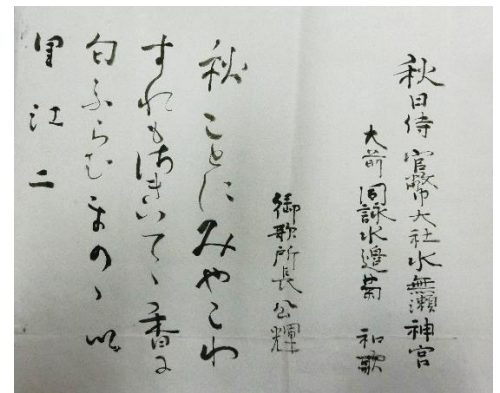 秋日侍 官幣大社水無瀬神宮
大前同詠水邊菊 和歌
御歌所長公輝
秋ことにみやこわ
すれも佐きいてゝ香に
匂ふらむのゝ以
里江二